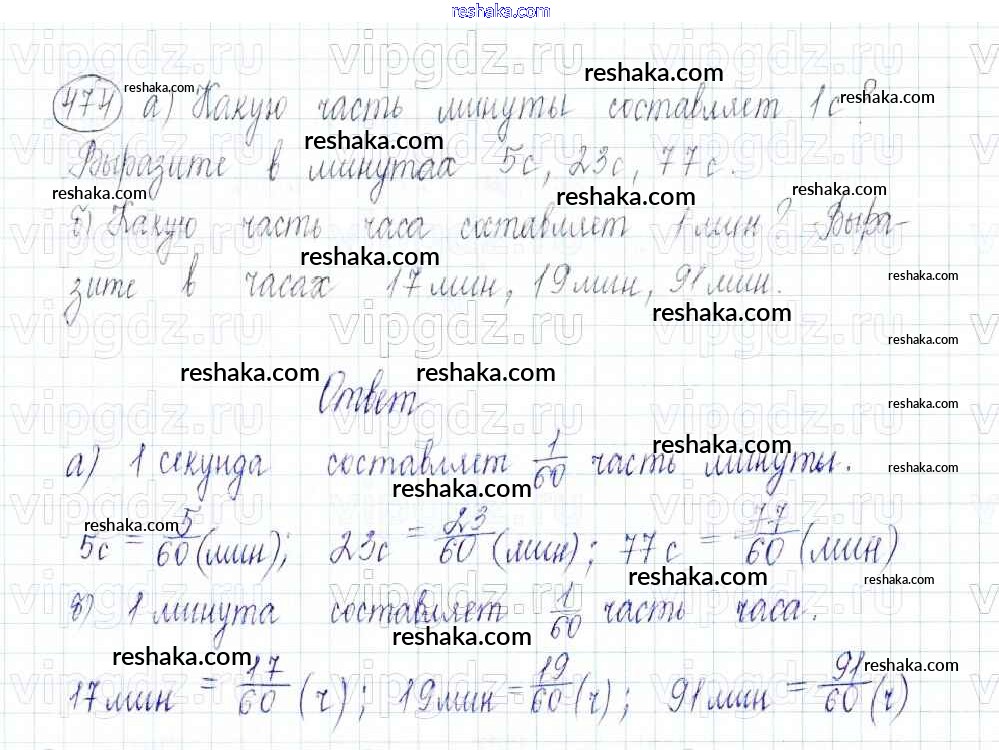 reshaka.com
474 а) Какую часть минуты составляет 1с?
Выразите в минутах 5с, 23с, 77с.
б) Какую часть часа составляет 1 мин? Выра-
зите в часах 17 мин, 19 мин, 91 мин.
Ответ
а) 1 секунда составляет 1/60 часть минуты.
5с = 5/60 (мин); 23с = 23/60 (мин); 77с = 77/60 (мин)
б) 1 минута составляет 1/60 часть часа.
17 мин = 17/60 (ч); 19 мин = 19/60 (ч); 91 мин = 91/60 (ч)